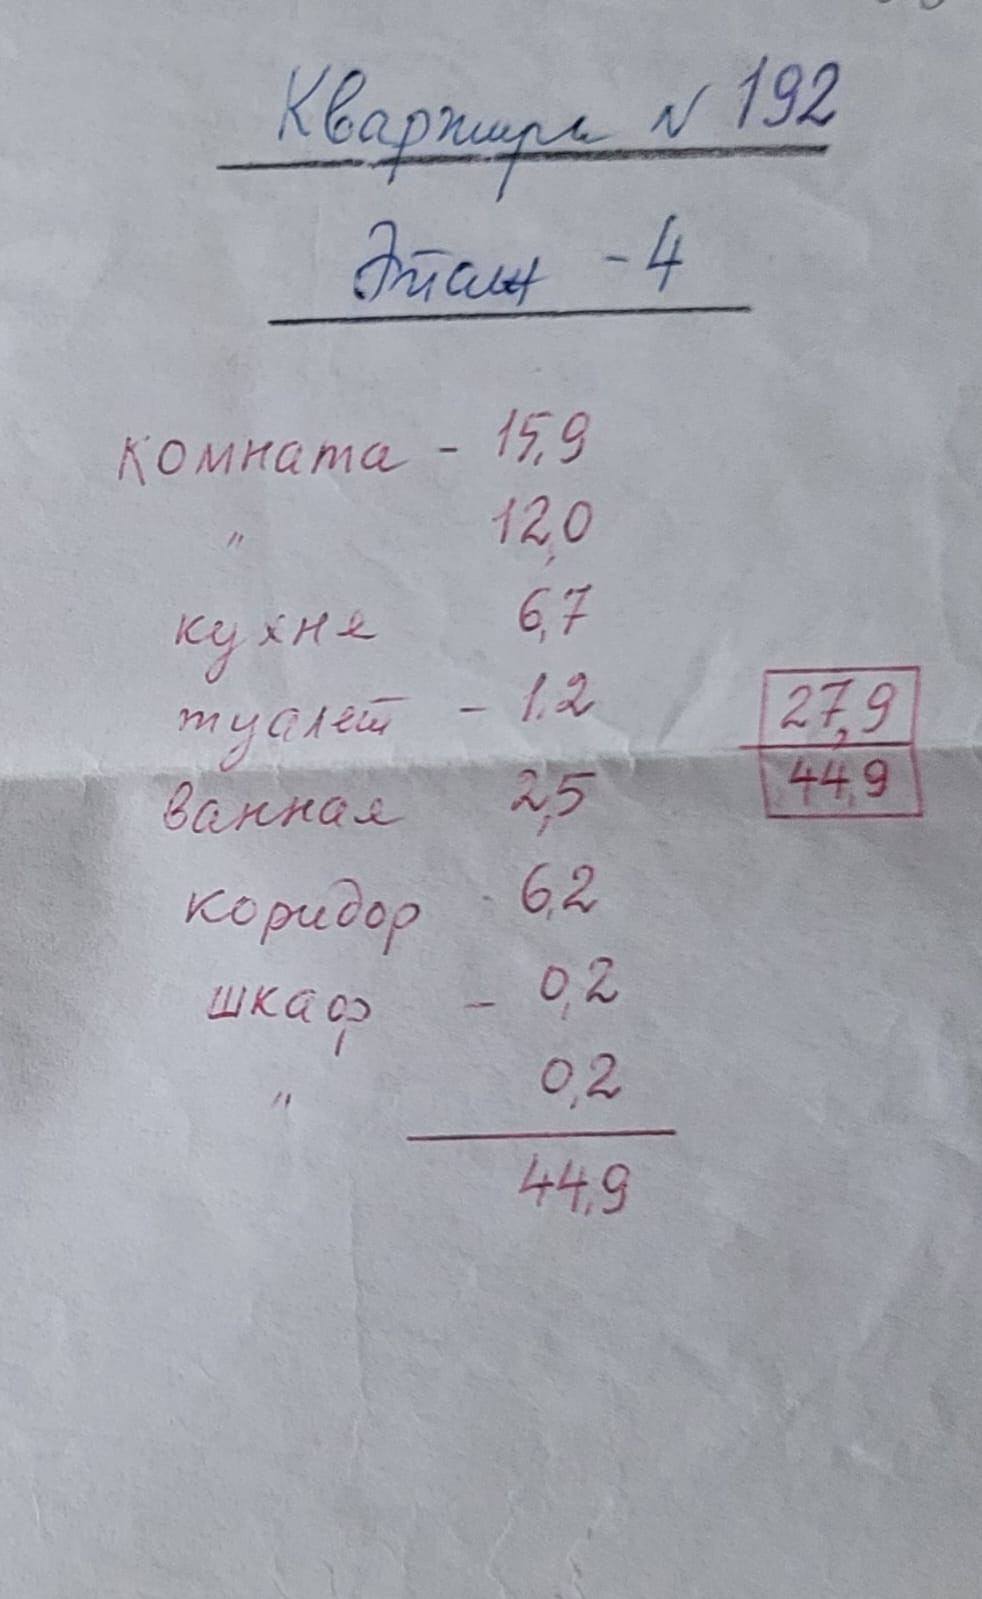 Квартира N 192
Этаж - 4
комната - 15,9
" 12,0
кухня 6,7
туалет - 1,2
27,9
44,9
ванная 2,5
коридор 6,2
шкаф - 0,2
" 0,2
44,9